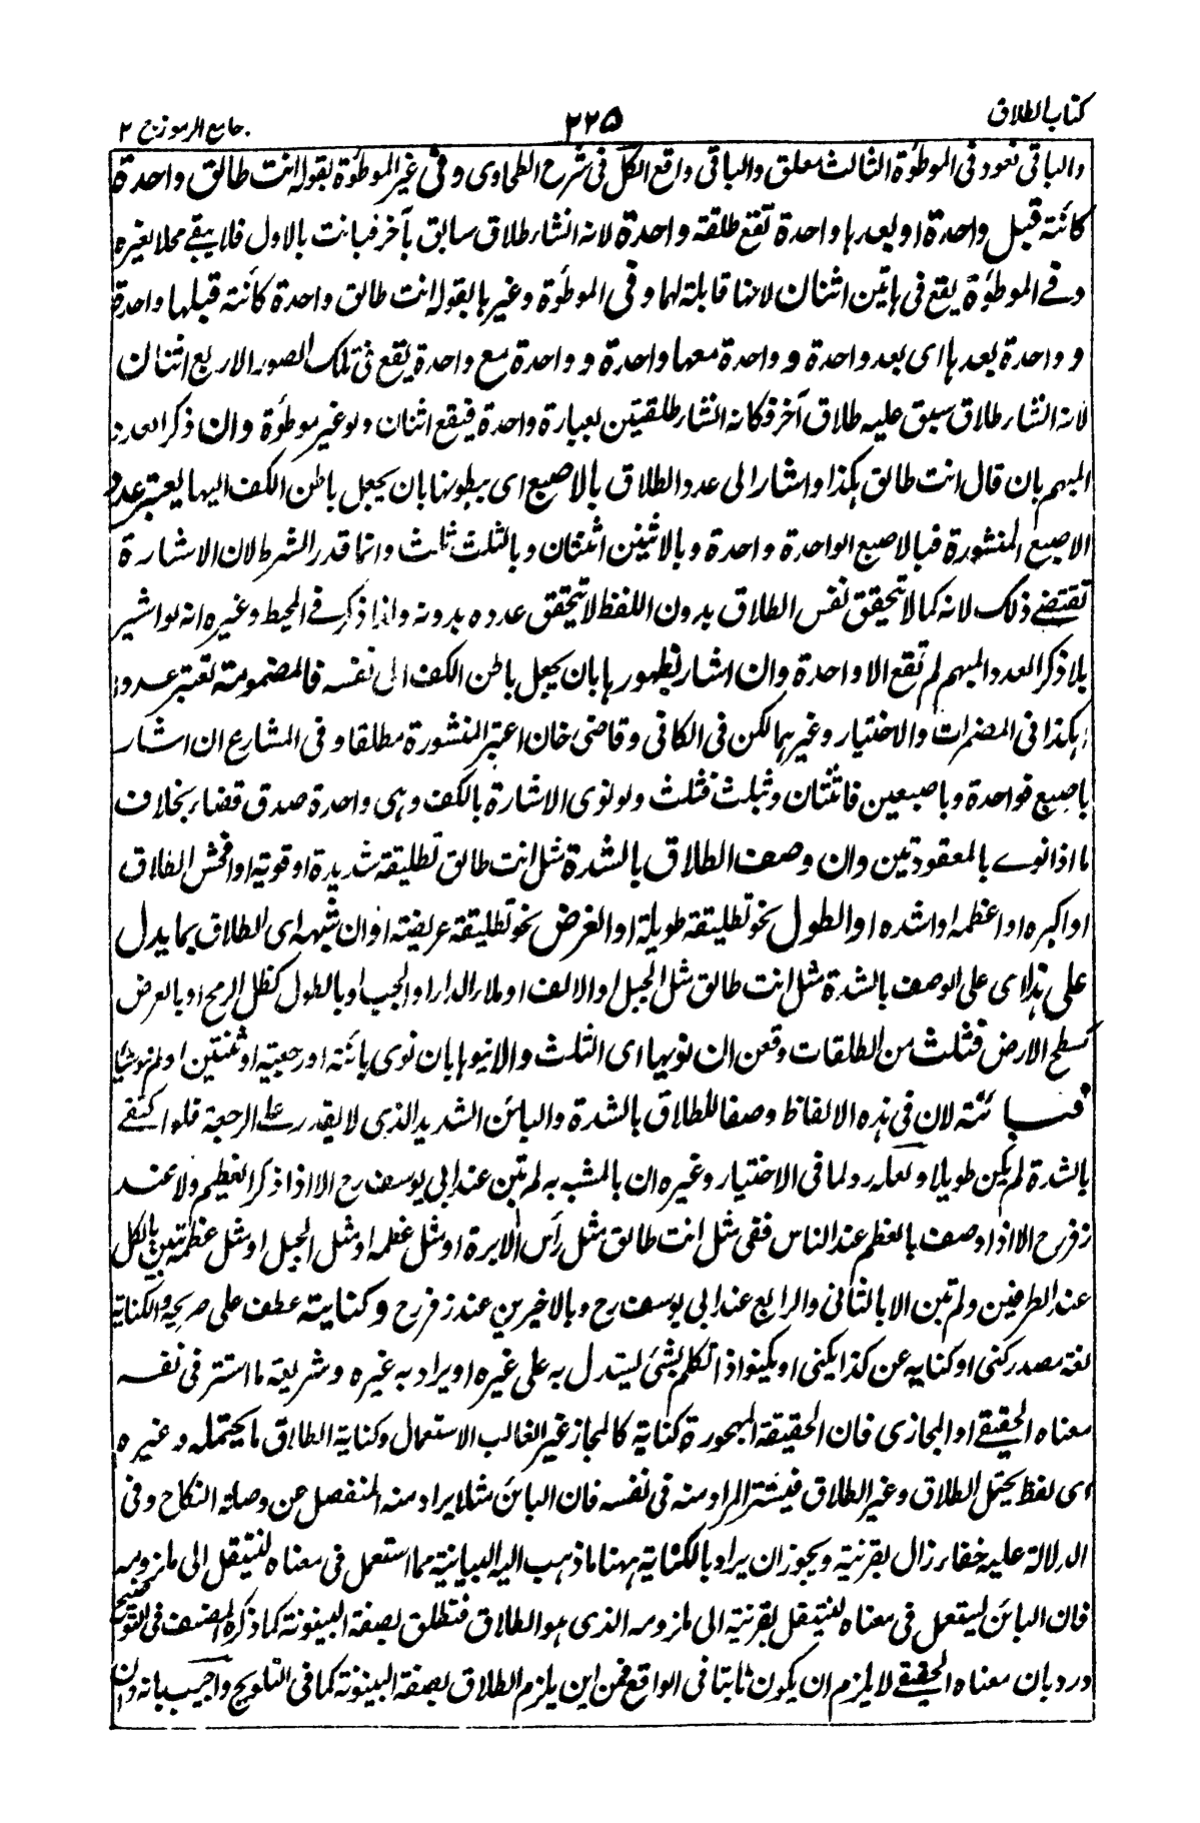 كتاب الطلاق
٢٢٥
جامع الرموز ج ٢
والباقي لغو وفي الموطؤة الثالث معلق والباقي واقع الكل في شرح الطحاوي وفي غير الموطؤة بقوله انت طالق واحدة
كائنة قبل واحدة او بعدها واحدة تقع طلقة واحدة لانه انشار طلاق سابق بآخر فبانت بالاول فلا يبقى محلا لغيره
وفي الموطؤة يقع في هاتين اثنان لانها قابلة لهما وفي الموطؤة وغيرها بقوله انت طالق واحدة كائنة قبلها واحدة
و واحدة بعدها اى بعد واحدة و واحدة معها واحدة و واحدة مع واحدة يقع في تلك الصور الاربع اثنان
لانه انشار طلاق سبق عليه طلاق آخر فكانه انشار طلقتين بعبارة واحدة فيقع اثنان ولو غير موطؤة وان ذكر العدد
المبهم بان قال انت طالق هكذا واشار الى عدد الطلاق بالاصبع اى ببطونها بان يجعل باطن الكف اليها يعتبر عدد
الاصبع المنشورة فبالاصبع الواحدة واحدة وبالاثنين اثنتان وبالثلث ثلث وانما قدر الشرط لان الاشارة
تقتضے ذلك لانه كما لا تحقق نفس الطلاق بدون اللفظ لا يتحقق عدده بدونه ولذا ذكر في المحيط وغيره انه لو اشير
بلا ذكر العدد المبهم لم تقع الا واحدة وان اشار بظهورها بان يجعل باطن الكف الى نفسه فالمضمومة تعتبر عددا
هكذا في المضمرات والاختيار وغيرهما لكن في الكافي وقاضي خان اعتبر المنشورة مطلقا وفي المشارع ان اشار
باصبع فواحدة وباصبعين فاثنتان وبثلث فثلث ولو نوى الاشارة بالكف وهى واحدة صدق قضاء بخلاف
ما اذا نوے بالمعقودتين وان وصف الطلاق بالشدة مثل انت طالق تطليقة شديدة او قوية او افحش الطلاق
او اكبره او اعظمه او اشده او الطول نحو تطليقة طويلة او العرض نحو تطليقة عريضة او ان شبهه اى الطلاق بما يدل
على هذا اى على الوصف بالشدة مثل انت طالق مثل الجبل او الالف او ملأ الدار او الجب او بالطول كظل الرمح او بالعرض
كسطح الارض فثلث من الطلقات وقعن ان نويها اى الثلث والا ينوها بان نوى بائنة او رجعية او ثنتين او لم ينو شيئا
فبائنة لان في هذه الالفاظ وصفا للطلاق بالشدة والبائن الشديد الذى لا يقدر على الرجعة فلو اكتفے
بالشدة لم يكن طويلا ولعله رد لما في الاختيار وغيره ان بالمشبه به لم تبن عند ابي يوسف رح الا اذا ذكر العظيم ولا عند
زفر رح الا اذا وصف بالعظم عند الناس ففي مثل انت طالق مثل رأس الابرة او مثل عظمه او مثل الجبل او مثل عظمته تبن بالكل
عند الطرفين ولم تبن الا بالثاني والرابع عند ابي يوسف رح وبالاخيرين عند زفر رح وكنايته عطف على صريحه والكناية
لغة مصدر كنى او كنايه عن كذا يكنى او يكنو اذا تكلم بشئ ليستدل به على غيره او يراد به غيره وشريعة ما استتر في نفسه
معناه الحقيقے او المجازى فان الحقيقة المهجورة كناية كالمجاز غير الغالب الاستعمال وكناية الطلاق ما يحتمله وغيره
اى لفظ يحتمل الطلاق وغير الطلاق فيستتر المراد منه في نفسه فان البائن مثلا يراد منه المنفصل عن وصلة النكاح وفي
الدلالة عليه خفاء زال بقرينة ويجوز ان يراد بالكناية ههنا ما ذهب اليه البيانية مما استعمل في معناه لينتقل الى ملزومه
فان البائن ليستعمل في معناه لينتقل بقرينة الى ملزومه الذى هو الطلاق فتطلق بصفة البينونة كما ذكره المصنف في التوضيح
ورد بان معناه الحقيقے لا يلزم ان يكون ثابتا في الواقع فمن اين يلزم الطلاق بصفة البينونة كما في التلويح واجيب بانه وان